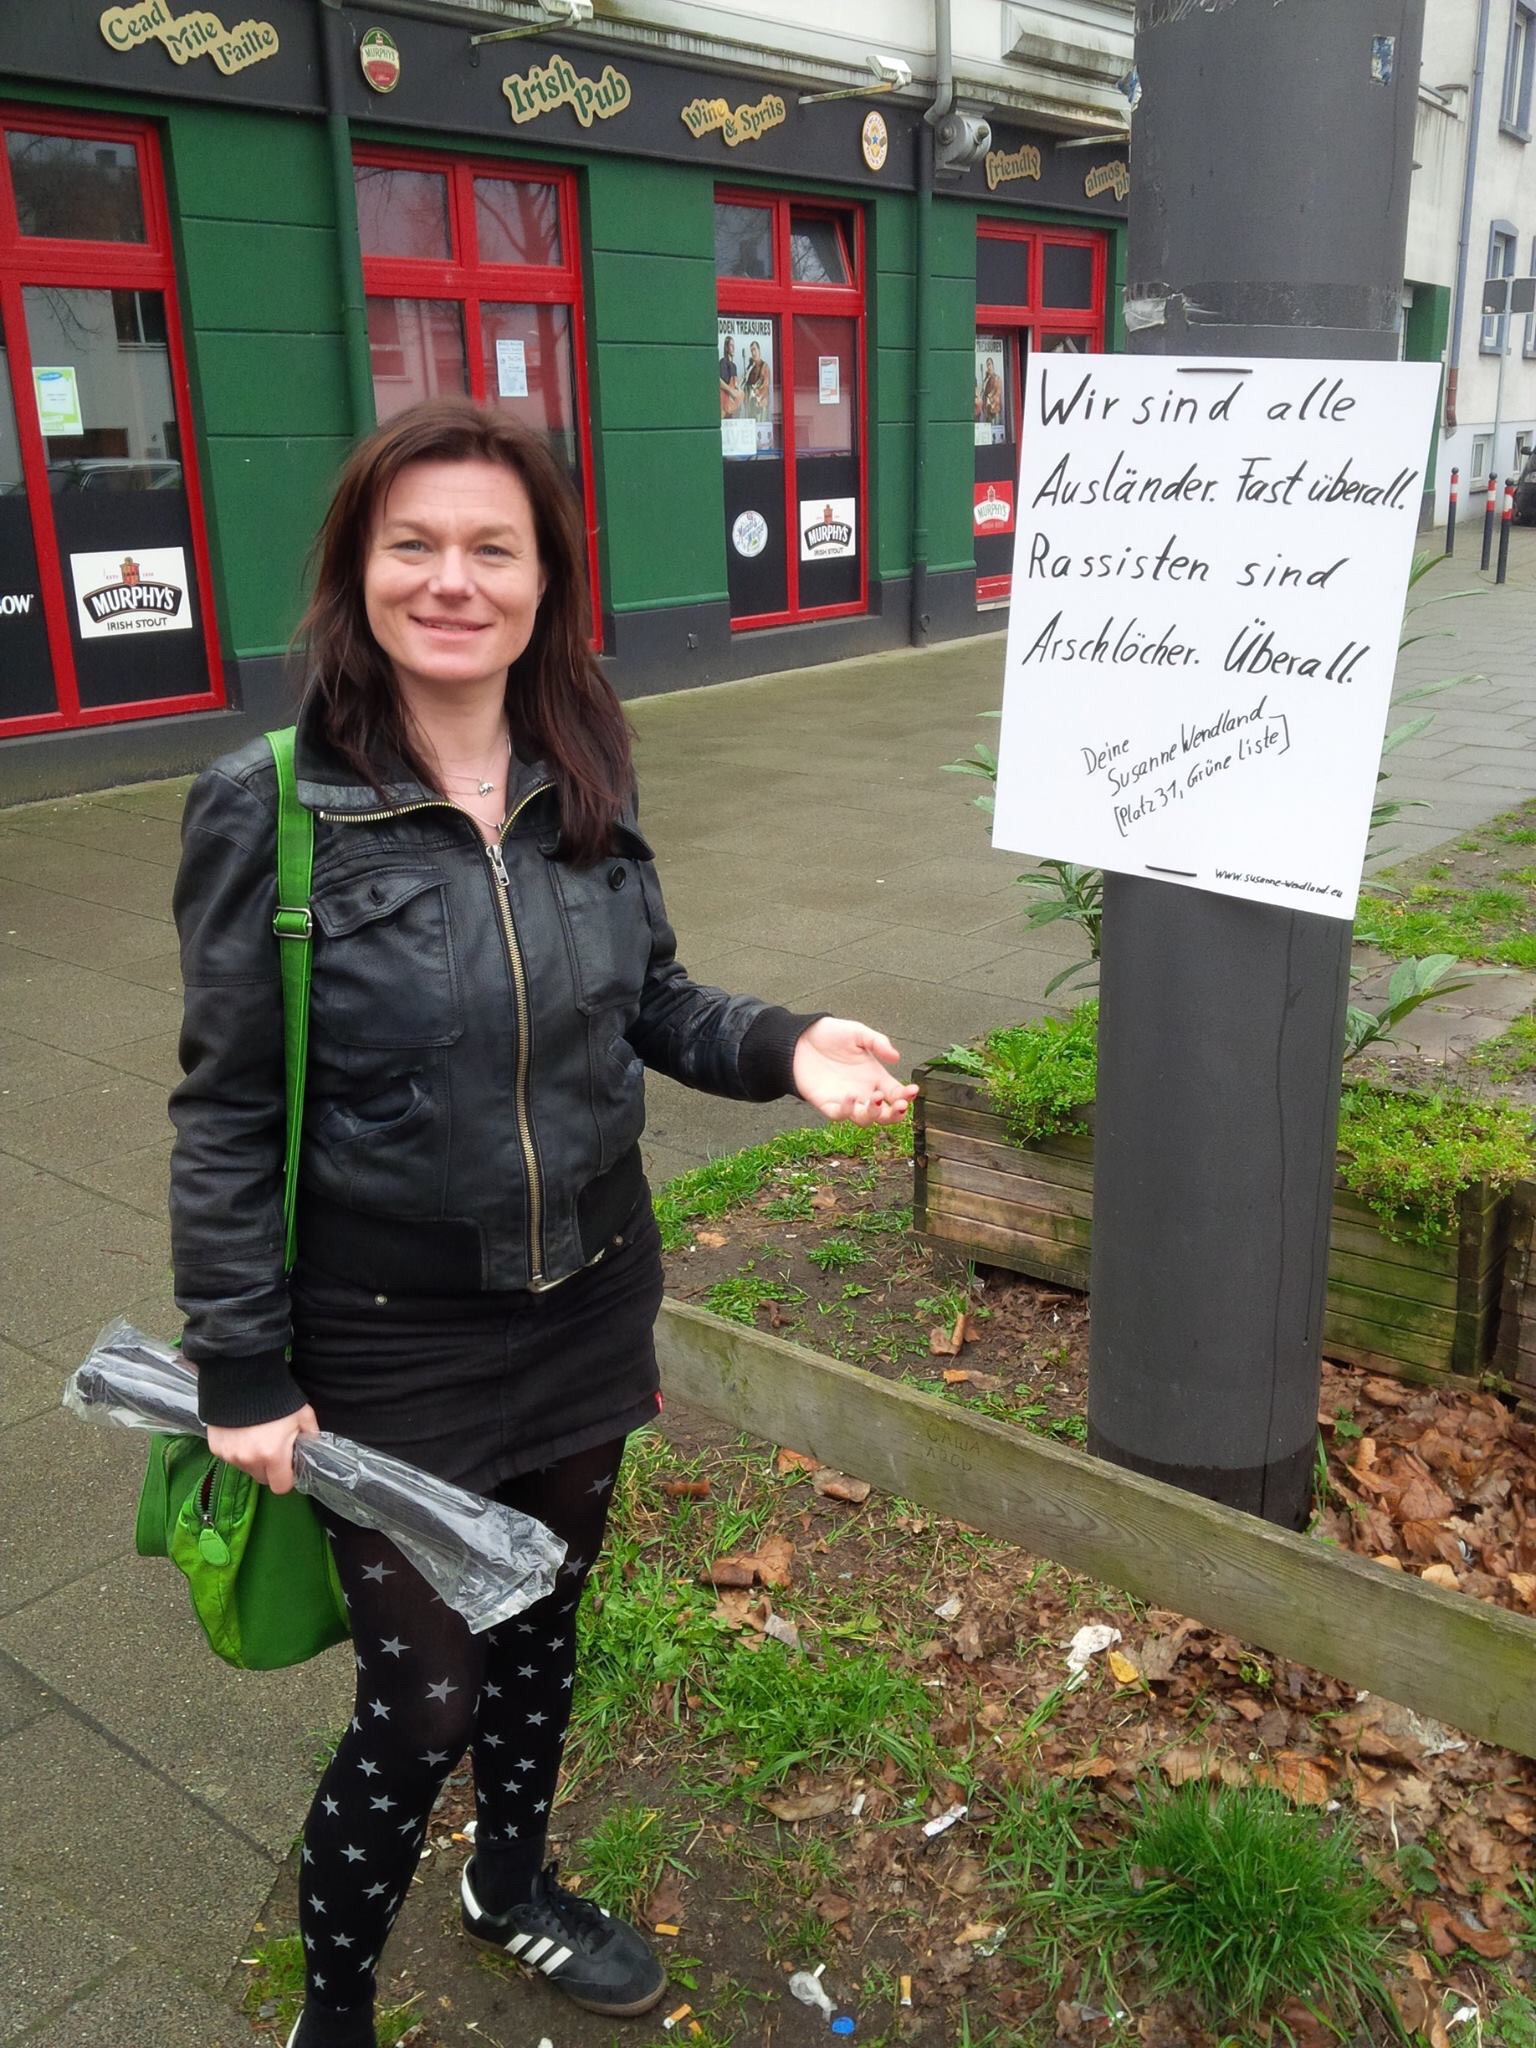 Cead
Mile
Failte
MURPHY'S
Irish
Pub
Wine
& Sprits
friendly
MURPHY'S
IRISH STOUT
DDEN TREASURES
LIVE!
MURPHY'S
IRISH STOUT
MURPHY'S
Wir sind alle
Ausländer. Fast überall.
Rassisten sind
Arschlöcher. Überall.
Deine
Susanne Wendland
[Platz 31, Grüne Liste]
www.susanne-wendland.eu
САША